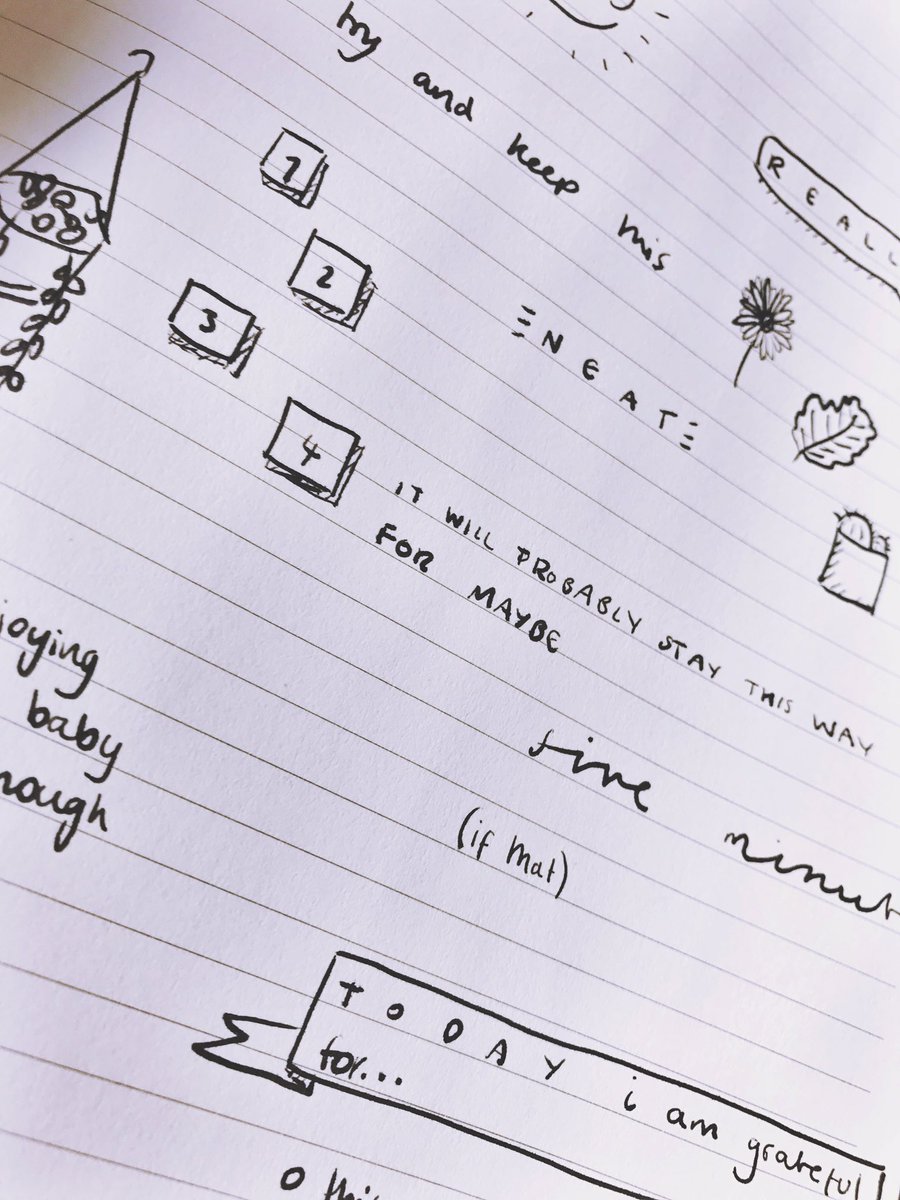 try and keep this
REALL
NEAT
1
2
3
4
IT WILL PROBABLY STAY THIS WAY
FOR MAYBE
five minut
(if that)
joying
baby
nough
TODAY i am grateful
for...